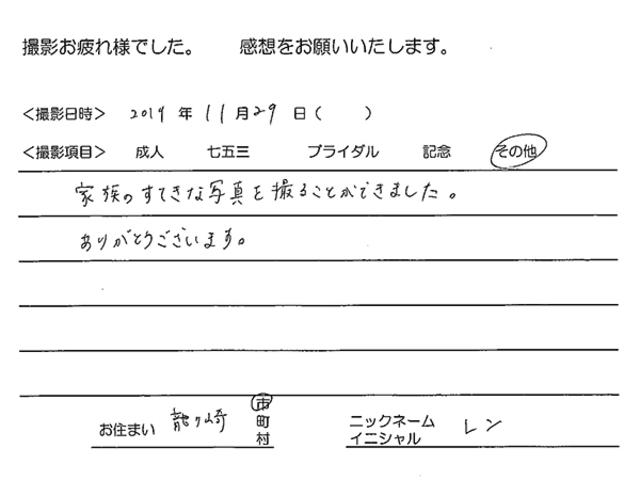 撮影お疲れ様でした。 感想をお願いいたします。
<撮影日時> 2019 年 11 月 29 日( )
<撮影項目> 成人 七五三 ブライダル 記念 その他
家族のすてきな写真を撮ることができました。
ありがとうございます。
お住まい 龍ヶ崎 市 町 村 ニックネーム イニシャル レン